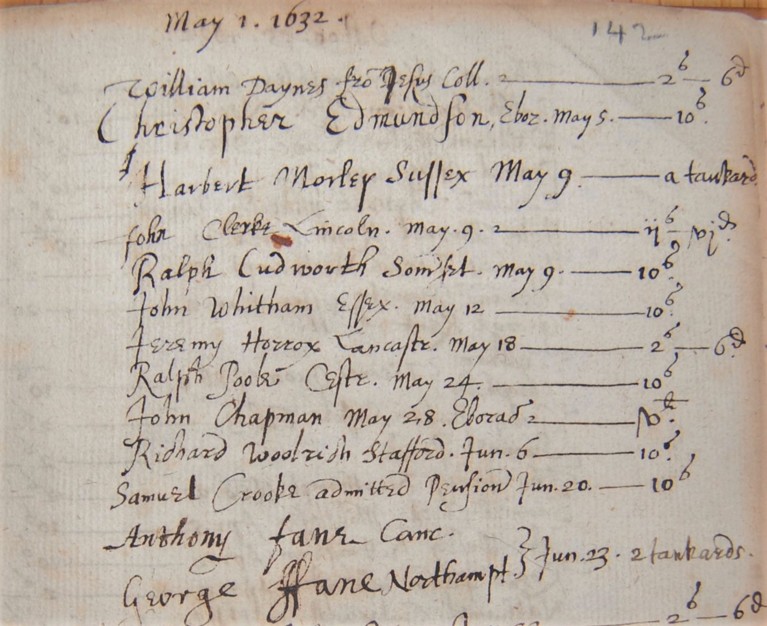 May 1. 1632.
142
William Daynes fro Jesus Coll. 2s 6d
Christopher Edmundson, Ebor. May 5. 10s.
Harbert Morley Sussex May 9 a tankard
John Clerke Lincoln. May. 9. ijs vjd.
Ralph Cudworth Somset. May 9. 10s.
John Whitham Essex. May 12 10s.
Jeremy Horrox Lancastr. May 18 2s 6d.
Ralph Poole Cestr. May 24. 10s
John Chapman May 28. Eborac
Richard Woolrich Stafford. Jun. 6 10s.
Samuel Crooke admitted Pension Jun. 20. 10s
Anthony fane Canc.
Jun. 23. 2 tankards.
George ffane Northampt.
2s 6d